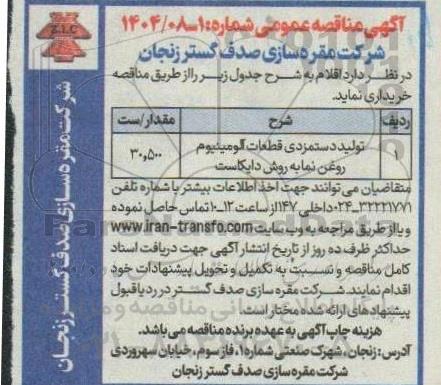 آگهی مناقصه عمومی شماره: ۱-۱۴۰۴/۰۸
شرکت مقره سازی صدف گستر زنجان
Z.I.C
در نظر دارد اقلام به شرح جدول زیر را از طریق مناقصه
خریداری نماید.
ردیف شرح مقدار/ست
۱ تولید دستمزدی قطعات آلومینیوم روغن نما به روش دایکاست ۳۰,۵۰۰
متقاضیان می توانند جهت اخذ اطلاعات بیشتر با شماره تلفن
۳۲۲۲۱۷۷۱-۰۲۴ داخلی ۱۴۷ از ساعت ۱۲-۱۰ تماس حاصل نموده
و یا از طریق مراجعه به وب سایت www.iran-transfo.com
حداکثر ظرف ده روز از تاریخ انتشار آگهی جهت دریافت اسناد
کامل مناقصه و نسبت به تکمیل و تحویل پیشنهادات خود
اقدام نمایند. شرکت مقره سازی صدف گستر در رد یا قبول
پیشنهادهای ارائه شده مختار است.
هزینه چاپ آگهی به عهده برنده مناقصه می باشد.
آدرس: زنجان، شهرک صنعتی شماره ۱، فاز سوم، خیابان سهروردی
شرکت مقره سازی صدف گستر زنجان
شرکت مقره سازی صدف گستر زنجان